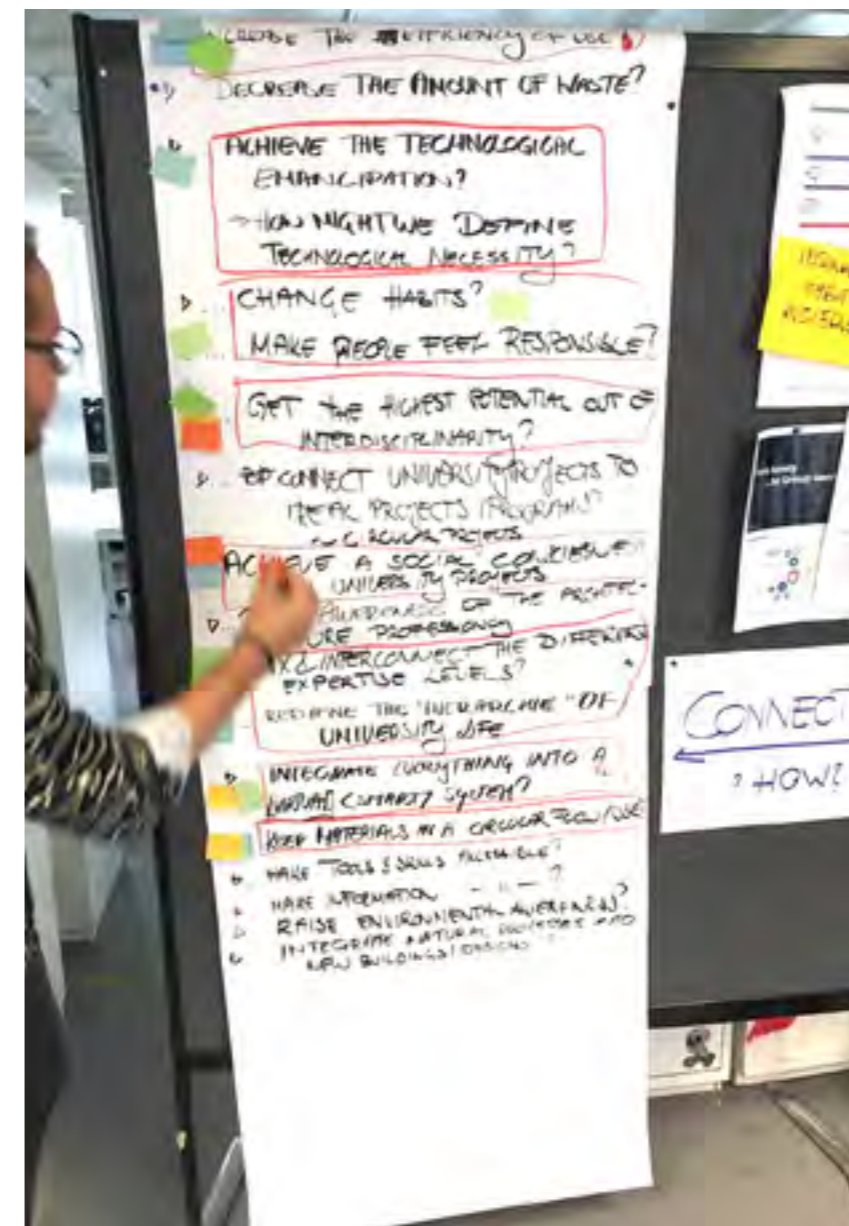 THE EFFICIENCY OF USE
DECREASE THE AMOUNT OF WASTE?
ACHIEVE THE TECHNOLOGICAL
EMANCIPATION?
→ HOW MIGHT WE DEFINE
TECHNOLOGICAL NECESSITY?
... CHANGE HABITS?
MAKE PEOPLE FEEL RESPONSIBLE?
GET THE HIGHEST POTENTIAL OUT OF
INTERDISCIPLINARITY?
CONNECT UNIVERSITY PROJECTS TO
PROJECTS / PROGRAMS?
CIRCULAR PROJECTS
ACHIEVE A SOCIAL
UNIVERSITY PROJECTS
AWARENESS OF THE ARCHITEC-
TURE PROFESSION
INTERCONNECT THE DIFFERENT
EXPERTISE LEVELS?
REDEFINE THE "HIERARCHIE" OF
UNIVERSITY LIFE
INTEGRATE EVERYTHING INTO A
SYSTEM?
KEEP MATERIALS IN A CIRCULAR FLOW/USE
MAKE TOOLS & SKILLS ACCESSIBLE?
MAKE INFORMATION - " - ?
RAISE ENVIRONMENTAL AWARENESS?
INTEGRATE NATURAL PROCESSES INTO
NEW BUILDINGS/DESIGNS
CONNECT
? HOW?